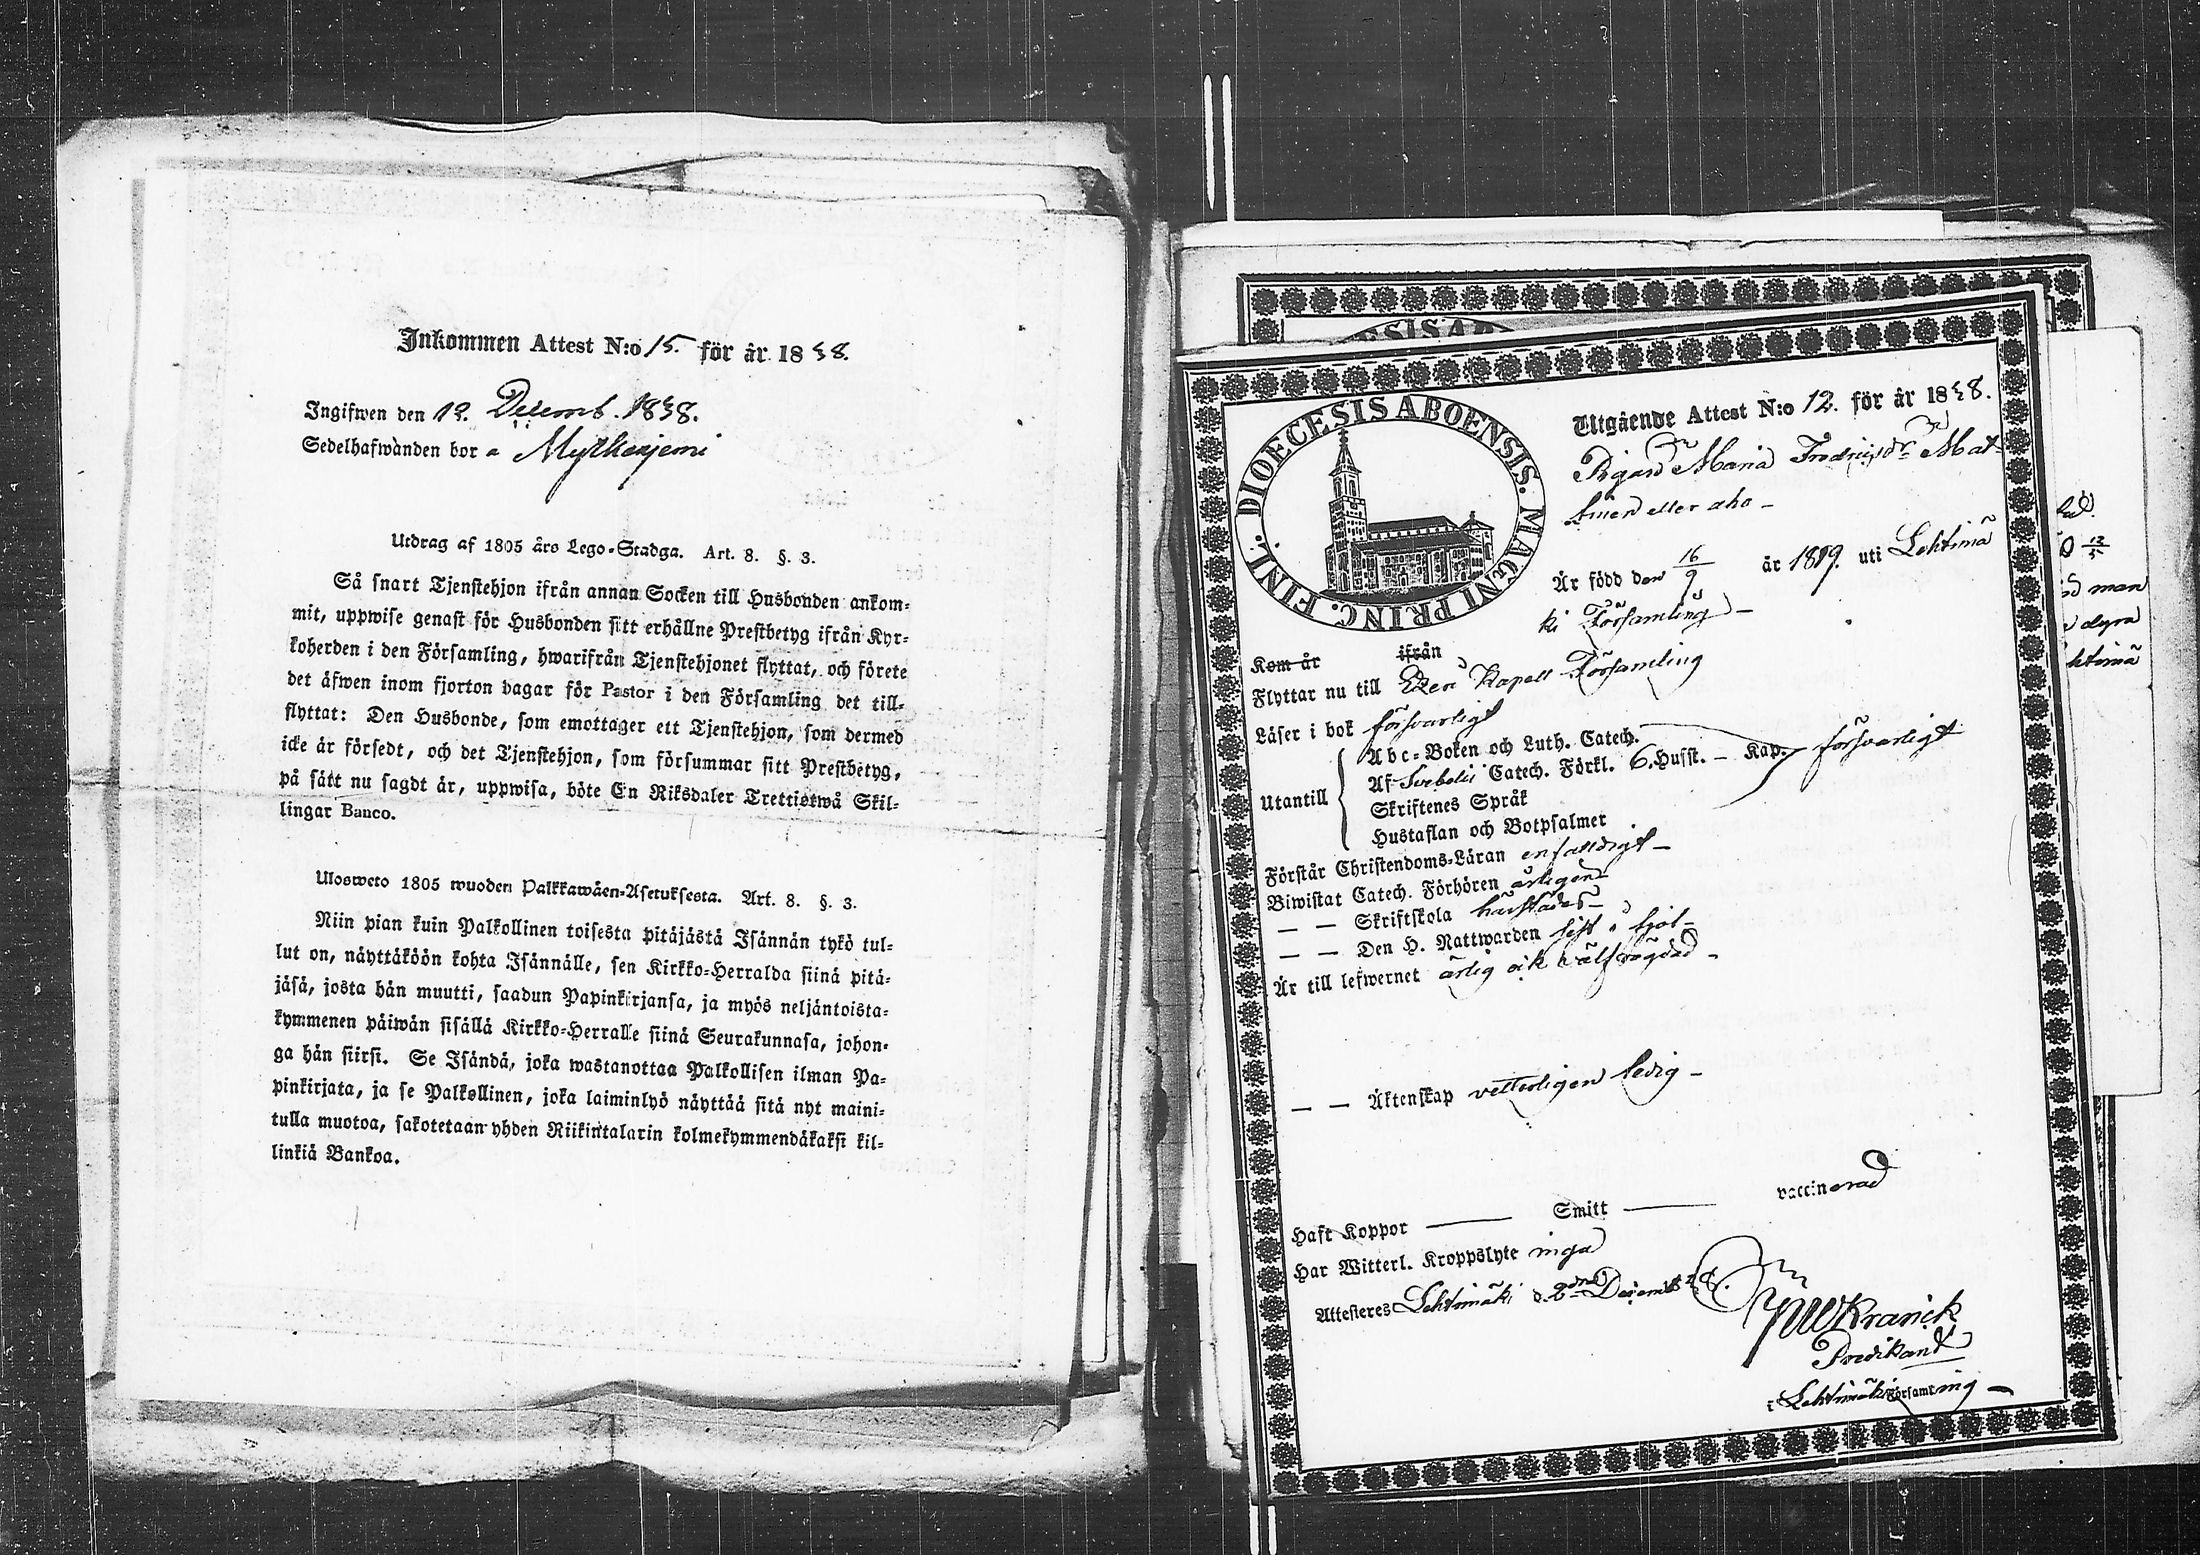 Inkommen Attest N:o 15. för år 1838.
Ingifwen den 12. Decemb. 1838.
Sedelhafwanden bor a Myllkanjemi
Utdrag af 1805 års Lego-Stadga. Art. 8. §. 3.
Så snart Tjenstehjon ifrån annan Socken till Husbonden ankom-
mit, uppwise genast för Husbonden sitt erhållne Prestbetyg ifrån Kyr-
koherden i den Församling, hwarifrån Tjenstehjonet flyttat, och förete
det äfwen inom fjorton dagar för Pastor i den Församling det till-
flyttat: Den Husbonde, som emottager ett Tjenstehjon, som dermed
icke är försedt, och det Tjenstehjon, som försummar sitt Prestbetyg,
på sätt nu sagdt är, uppwisa, böte En Riksdaler Trettiotwå Skil-
lingar Banco.
Ulosweto 1805 wuoden Palkkawäen-Asetuksesta. Art. 8. §. 3.
Niin pian kuin Palkollinen toisesta pitäjästä Isännän tykö tul-
lut on, näyttäköön kohta Isännälle, sen Kirkko-Herralda siinä pitä-
jäsä, josta hän muutti, saadun Papinkirjansa, ja myös neljäntoista-
kymmenen päiwän sisällä Kirkko-Herralle siinä Seurakunnasa, johon-
ga hän siirsi. Se Isändä, joka wastanottaa Palkollisen ilman Pa-
pinkirjata, ja se Palkollinen, joka laiminlyö näyttää sitä nyt maini-
tulla muotoa, sakotetaan yhden Riikintalarin kolmekymmendäkaksi kil-
linkiä Bankoa.
DIOECESIS ABOENSIS. MAGNI PRINC. FINL.
Utgående Attest N:o 12. för år 1838.
Pigan Maria Fredricsdr Mat-
Är född den 16/9 år 1819. uti Lehtimä
ki Församling
Kom år ifrån
Flyttar nu till Etseri Kapell Församling
Läser i bok försvarligt
Utantill
Abc-Boken och Luth. Catech.
Af Svebelii Catech. Förkl. 6. Husst. - Kap. försvarligt
Skriftenes Språk
Hustaflan och Botpsalmer
Förstår Christendoms-Läran enfalldigt
Biwistat Catech. Förhören årligen
— — Skriftskola härstädes
— — Den H. Nattwarden sist i fjol
Är till lefwernet ärlig och välfrägdad
— — Äktenskap vetterligen ledig
Haft Koppor — Smitt — vaccinerad
Har Witterl. Kroppslyte inga
Attesteras Lehtimäki d. 2dra Decemb 1838.
Kranck
Predikant
i Lehtimäki Församling